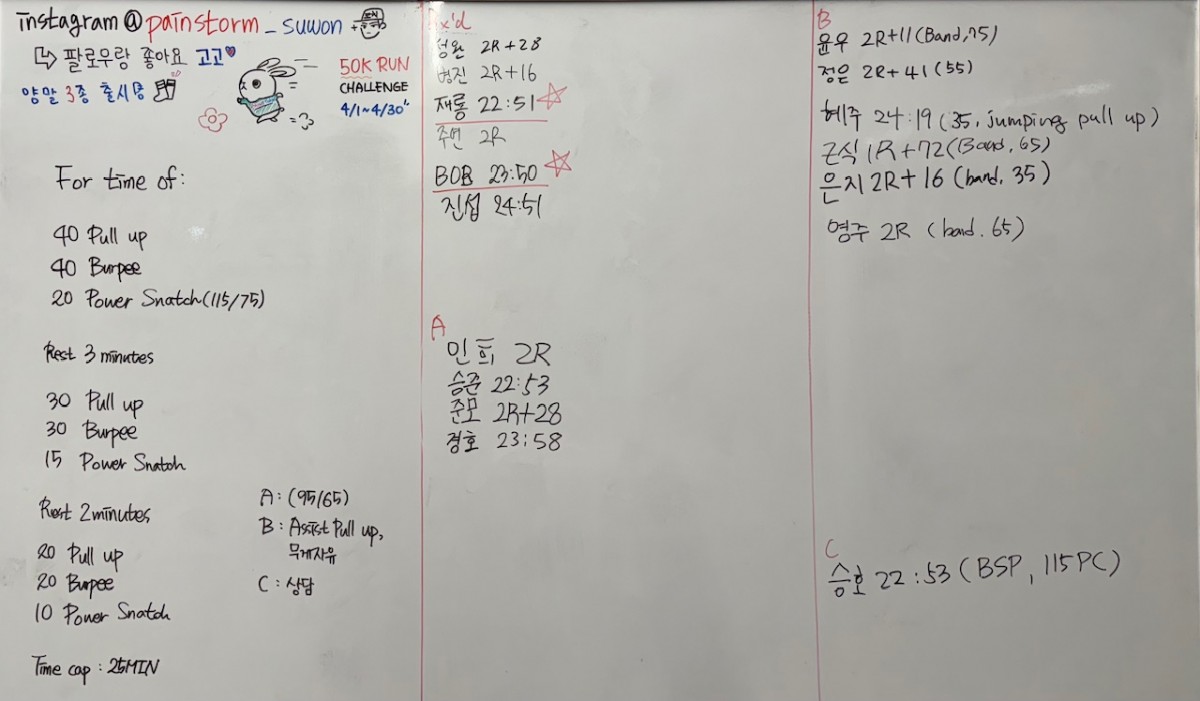 instagram@painstorm_suwon
팔로우랑 좋아요 고고
양말 3종 출시중
50K RUN
CHALLENGE
4/1~4/30
For time of:
40 Pull up
40 Burpee
20 Power Snatch(115/75)
Rest 3 minutes
30 Pull up
30 Burpee
15 Power Snatch
Rest 2minutes
20 Pull up
20 Burpee
10 Power Snatch
Time cap : 25MIN
A : (95/65)
B : Assist Pull up,
무게자유
C : 상담
x'd
2R+28
병진 2R+16
재룡 22:51
주연 2R
BOB 23:50
진섭 24:51
A
인희 2R
승준 22:53
준모 2R+28
경호 23:58
B
윤우 2R+11(Band,75)
정은 2R+41(55)
혜주 24:19(35, jumping pull up)
근식 1R+72(Band,65)
은지 2R+16(band, 35)
영주 2R (band. 65)
C
승호 22:53(BSP, 115PC)